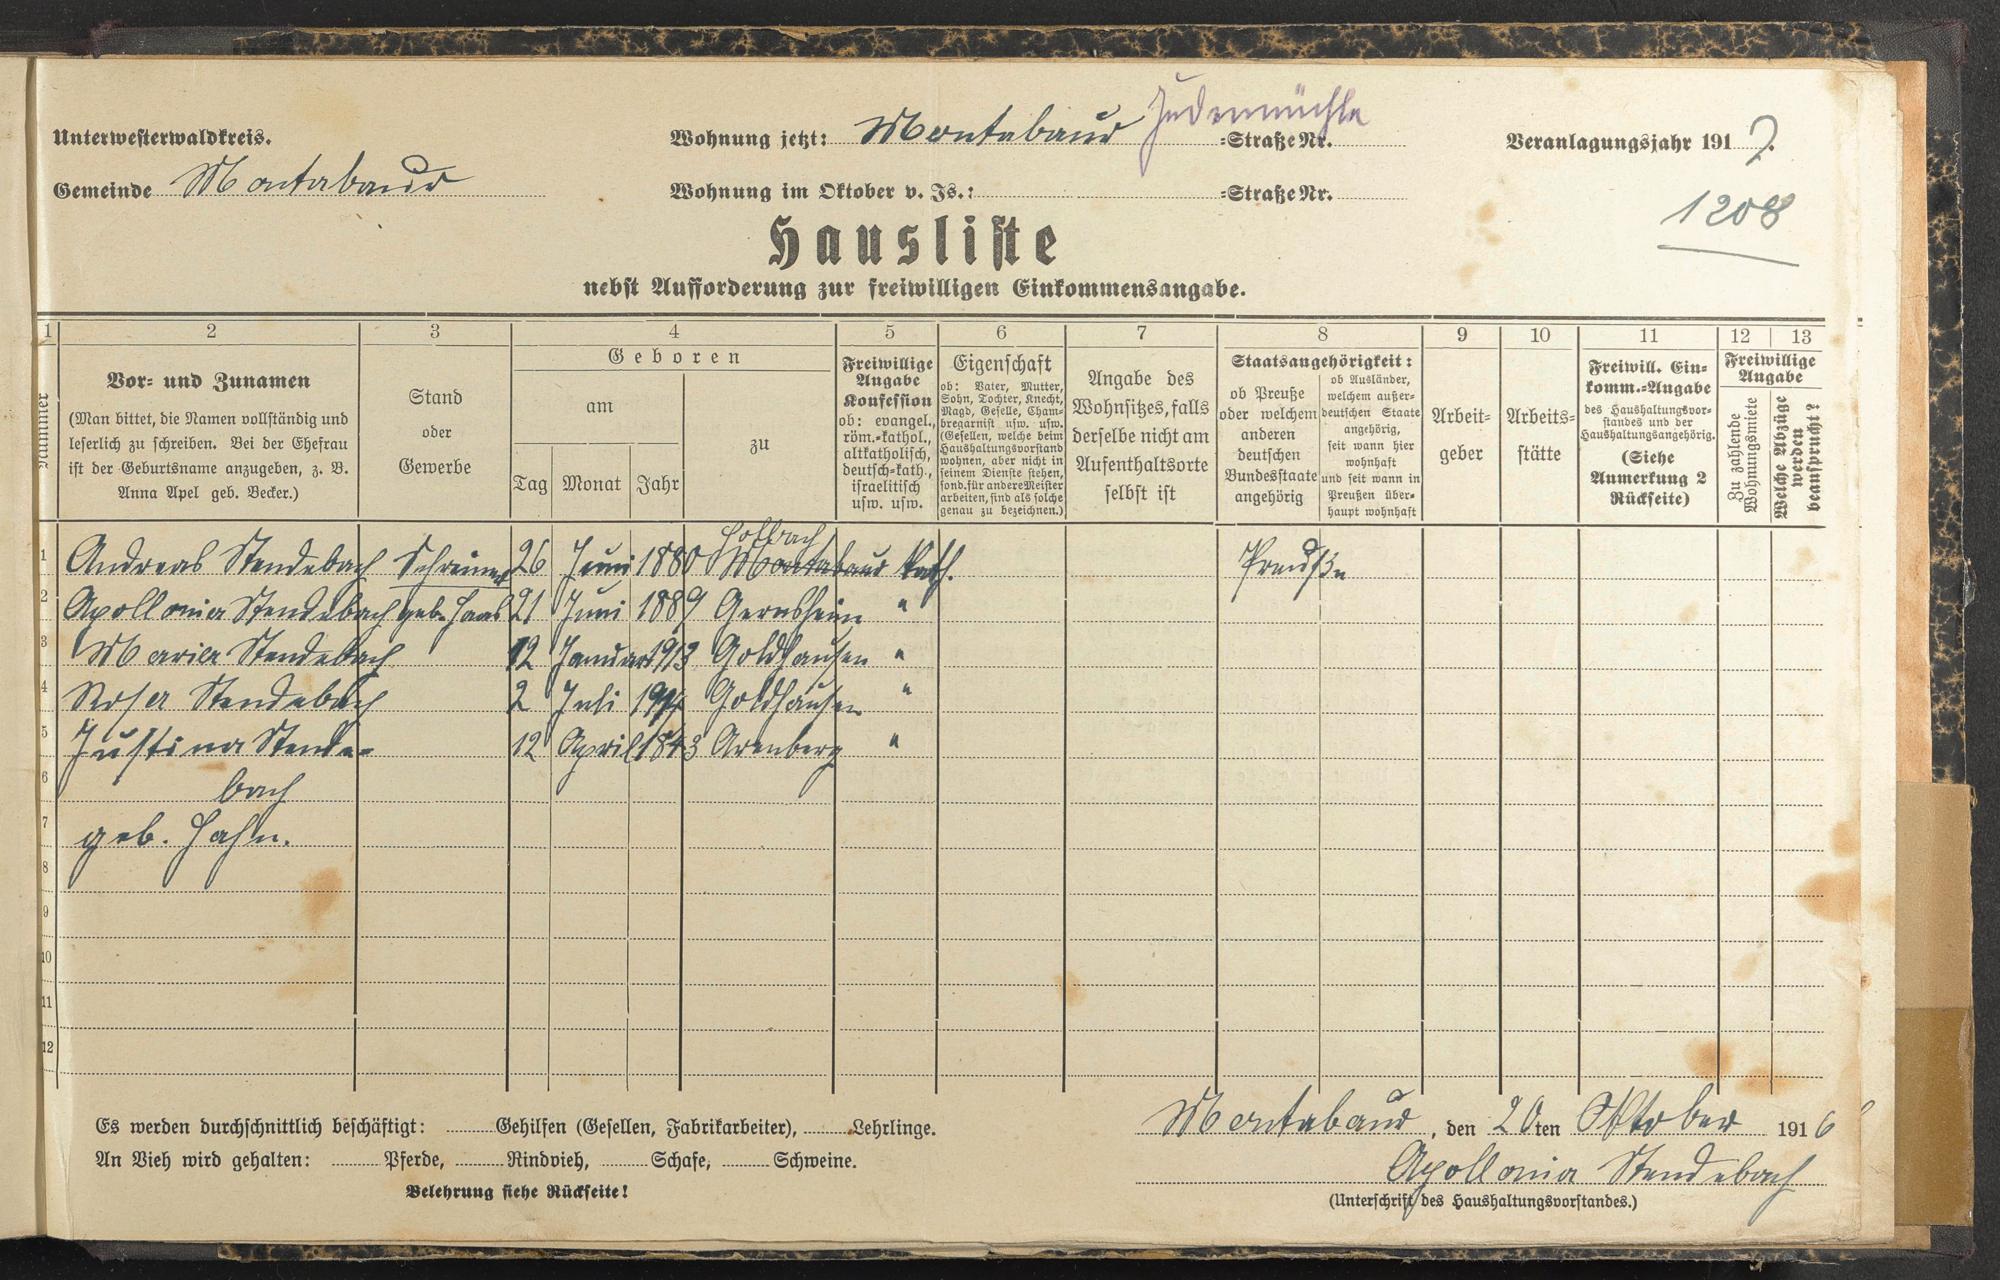 Unterwesterwaldkreis.
Wohnung jetzt: Montabaur Judenmühle =Straße Nr.
Veranlagungsjahr 1917.
Gemeinde Montabaur
Wohnung im Oktober v. Js.: =Straße Nr.
1208
Hausliste
nebst Aufforderung zur freiwilligen Einkommensangabe.
1 2 3 4 5 6 7 8 9 10 11 12 13
Nummer
Vor- und Zunamen
(Man bittet, die Namen vollständig und
leserlich zu schreiben. Bei der Ehefrau
ist der Geburtsname anzugeben, z. B.
Anna Apel geb. Becker.)
Stand
oder
Gewerbe
Geboren
am
Tag Monat Jahr
zu
Freiwillige
Angabe
Konfession
ob: evangel.,
röm.-kathol.,
altkatholisch,
deutsch-kath.,
israelitisch
usw. usw.
Eigenschaft
ob: Vater, Mutter,
Sohn, Tochter, Knecht,
Magd, Geselle, Cham-
bregarnist usw. usw.
(Gesellen, welche beim
Haushaltungsvorstand
wohnen, aber nicht in
seinem Dienste stehen,
sond. für andere Meister
arbeiten, sind als solche
genau zu bezeichnen.)
Angabe des
Wohnsitzes, falls
derselbe nicht am
Aufenthaltsorte
selbst ist
Staatsangehörigkeit:
ob Preuße
oder welchem
anderen
deutschen
Bundesstaate
angehörig
ob Ausländer,
welchem außer-
deutschen Staate
angehörig,
seit wann hier
wohnhaft
und seit wann in
Preußen über-
haupt wohnhaft
Arbeit-
geber
Arbeits-
stätte
Freiwill. Ein-
komm.-Angabe
des Haushaltungsvor-
standes und der
Haushaltungsangehörig.
(Siehe
Anmerkung 2
Rückseite)
Freiwillige
Angabe
Zu zahlende
Wohnungsmiete
Welche Abzüge
werden
beansprucht?
1 Andreas Stendebach Schreiner 26 Juni 1880 Montabaur Kath. Preuße
2 Apollonia Stendebach geb. Haas 21 Juni 1889 Gernsheim "
3 Maria Stendebach 12 Januar 1913 Goldhausen "
4 Rosa Stendebach 2 Juli Goldhausen "
5 Justina Stende- 12 April 1843 Arenberg "
6 bach
7 geb. Hahn.
8
9
10
11
12
Es werden durchschnittlich beschäftigt: Gehilfen (Gesellen, Fabrikarbeiter), Lehrlinge.
An Vieh wird gehalten: Pferde, Rindvieh, Schafe, Schweine.
Belehrung siehe Rückseite!
Montabaur, den 20ten Oktober 1916
Apollonia Stendebach
(Unterschrift des Haushaltungsvorstandes.)